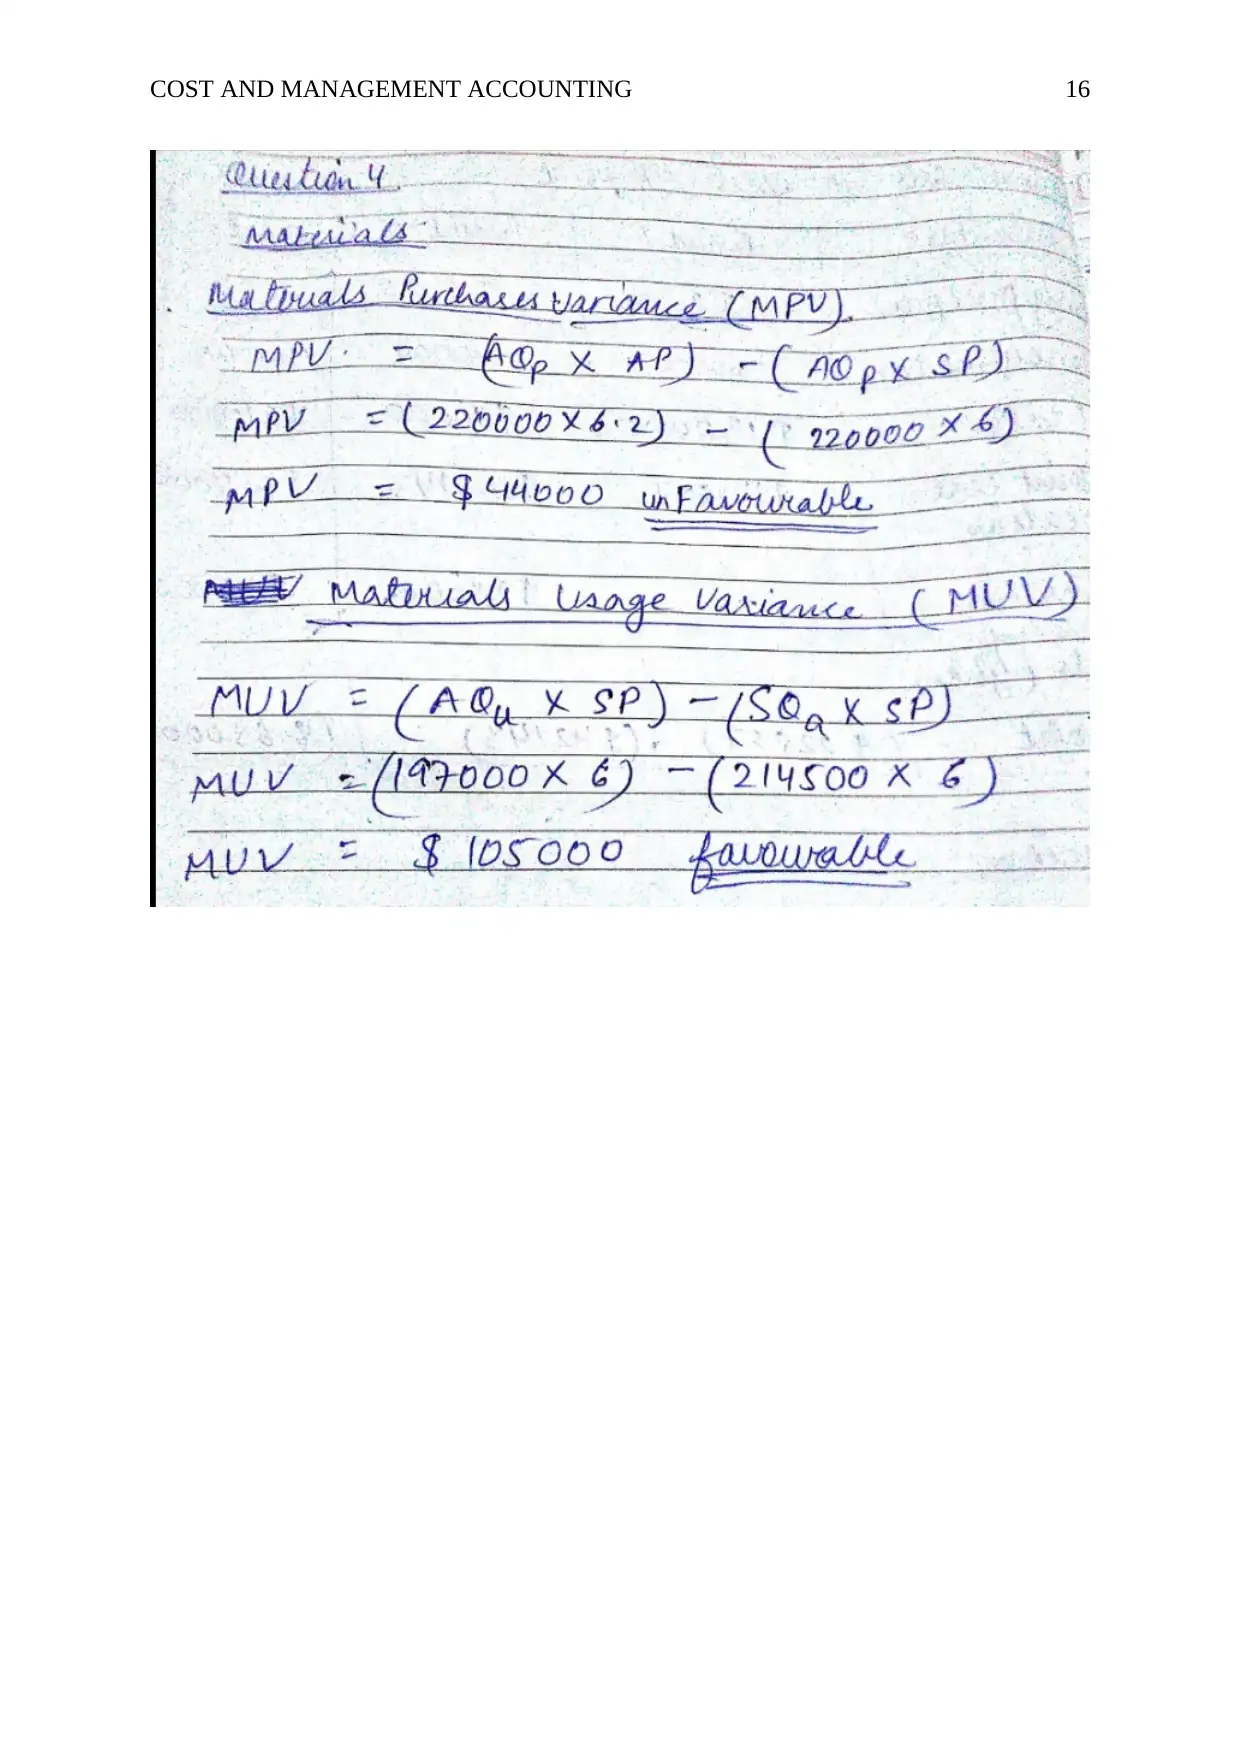 COST AND MANAGEMENT ACCOUNTING 16
Question 4.
Materials
Materials Purchases variance (MPV).
MPV. = (AQp X AP) - (AQp X SP)
MPV = (220000 X 6.2) - (220000 X 6)
MPV = $ 44000 unFavourable
Materials Usage Variance (MUV)
MUV = (AQu X SP) - (SQa X SP)
MUV = (197000 X 6) - (214500 X 6)
MUV = $ 105000 favourable